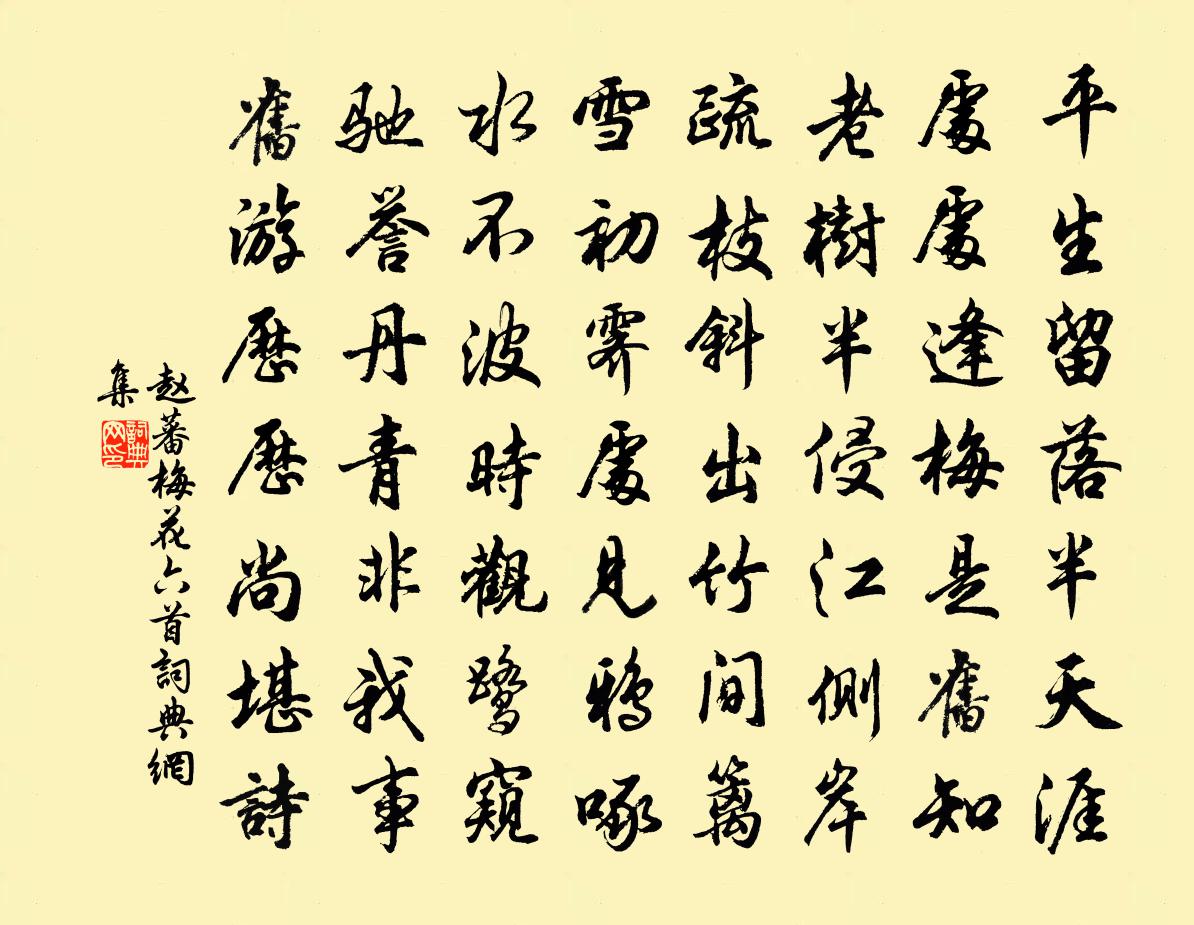 平生留落半天涯
處處逢梅是舊知
老樹半侵江側岸
疏枝斜出竹間籬
雪初霽處見鴉啄
水不波時觀鷺窺
馳譽丹青非我事
舊游歷歷尚堪詩
赵蕃梅花六首詞典網
集
詞典
网印